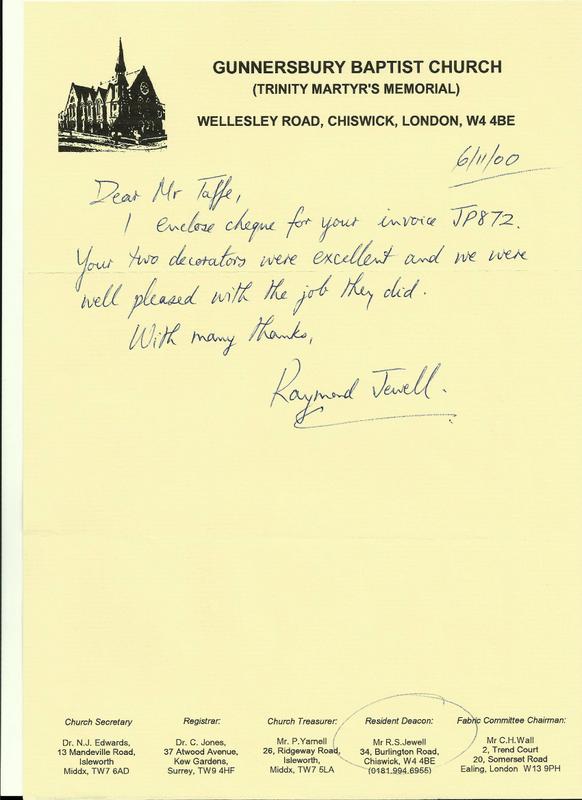 GUNNERSBURY BAPTIST CHURCH
(TRINITY MARTYR'S MEMORIAL)
WELLESLEY ROAD, CHISWICK, LONDON, W4 4BE
6/11/00
Dear Mr Taffe,
I enclose cheque for your invoice JP872.
Your two decorators were excellent and we were
well pleased with the job they did.
With many thanks,
Raymond Jewell.
Church Secretary
Dr. N.J. Edwards,
13 Mandeville Road,
Isleworth,
Middx, TW7 6AD
Registrar:
Dr. C. Jones,
37 Atwood Avenue,
Kew Gardens,
Surrey, TW9 4HF
Church Treasurer:
Mr. P.Yarnell
26, Ridgeway Road,
Isleworth,
Middx, TW7 5LA
Resident Deacon:
Mr R.S.Jewell
34, Burlington Road,
Chiswick, W4 4BE
(0181.994.6955)
Fabric Committee Chairman:
Mr C.H.Wall
2, Trend Court
20, Somerset Road
Ealing, London W13 9PH